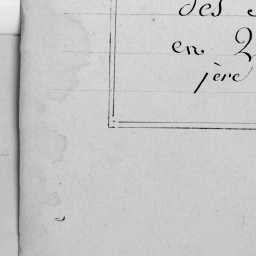 des
en 2
1ère